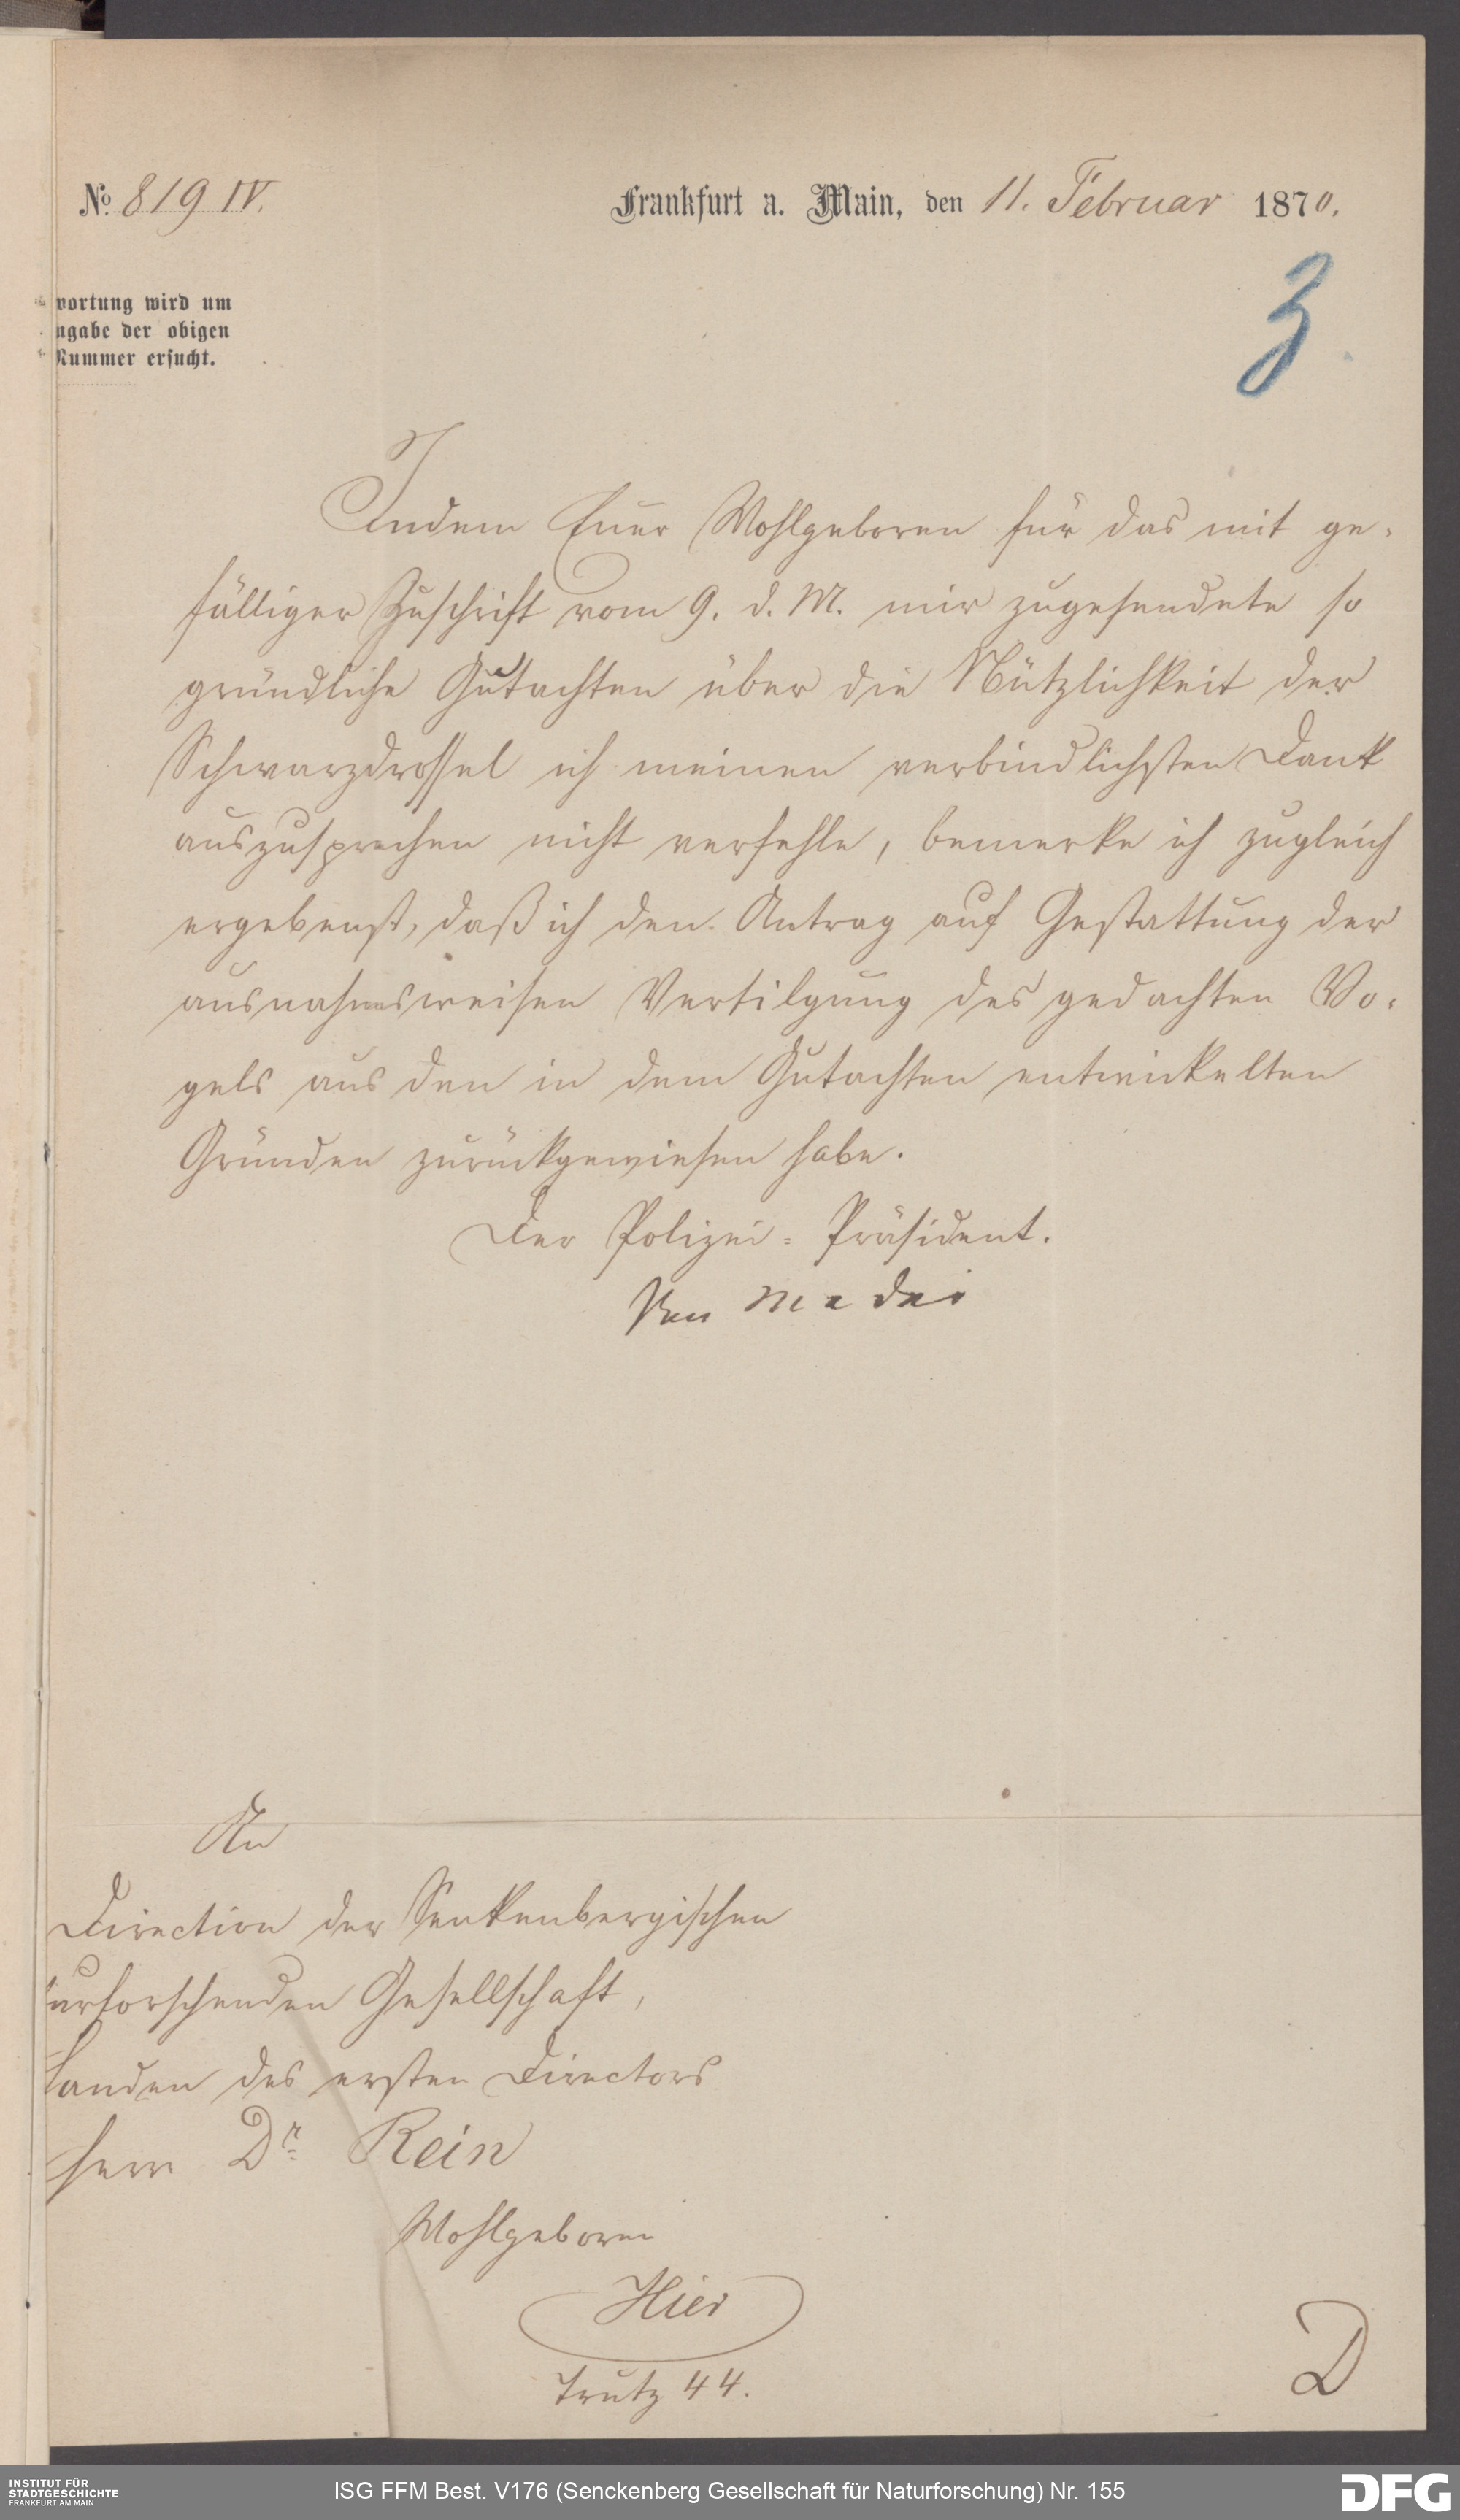 No. 819 IV.
Frankfurt a. Main, den 11. Februar 1870.
3
wortung wird um
ngabe der obigen
Nummer ersucht.
Indem Euer Wohlgeboren für das mit ge-
fälliger Zuschrift vom 9. d. M. mir zugesendete so
gründliche Gutachten über die Nützlichkeit der
Schwarzdrossel ich meinen verbindlichsten Dank
auszusprechen nicht verfehle, bemerke ich zugleich
ergebenst, daß ich den Antrag auf Gestattung der
ausnahmsweisen Vertilgung des gedachten Vo-
gels aus den in dem Gutachten entwickelten
Gründen zurückgewiesen habe.
Der Polizei-Präsident.
Von Madai
An
Direction der Senkenbergischen
urforschenden Gesellschaft,
Handen des ersten Directors
Herrn Dr. Rein
Wohlgeboren
Hier
Trutz 44.
D
INSTITUT FÜR
STADTGESCHICHTE
FRANKFURT AM MAIN
ISG FFM Best. V176 (Senckenberg Gesellschaft für Naturforschung) Nr. 155
DFG